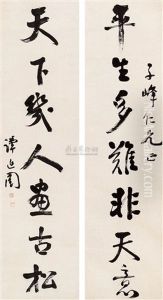 子峰仁兄正
平生多難非天意
天下幾人畫古松
譚延闓